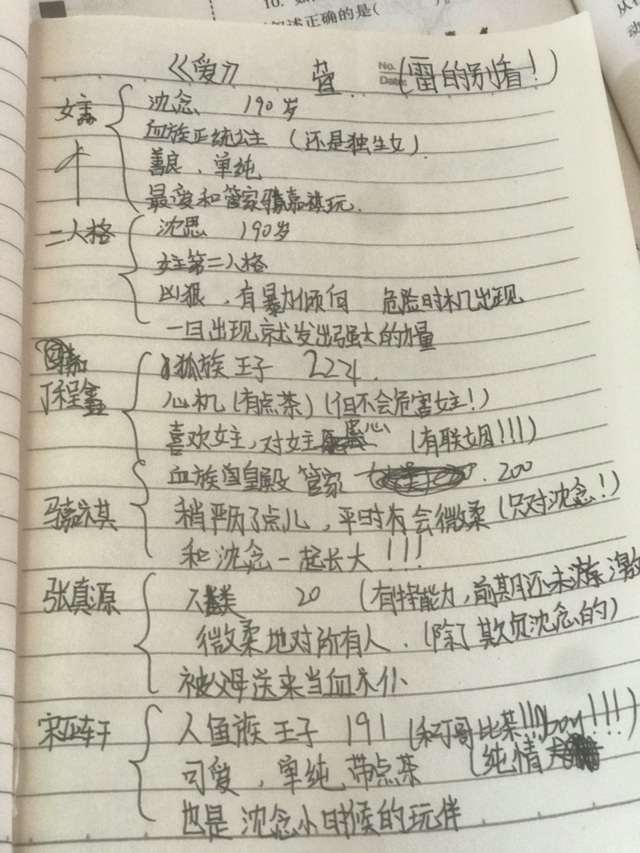 述正确的是(
《爱》 No. Date (雷的别看!)
女主 沈念 190岁
血族正统公主 (还是独生女)
善良、单纯
最爱和管家骐嘉祺玩
二人格 沈思 190岁
女主第二人格
凶狠,有暴力倾向 危险时机出现
一旦出现就发出强大的力量
丁程鑫 狐族王子 224
心机(有点茶)(但不会危害女主!)
喜欢女主,对女主 (有联姻!!!)
血族 皇殿 管家 200
嘉祺 稍严厉了点儿,平时有会微柔(只对沈念!)
和沈念一起长大!!!
张真源 人类 20 (有特能力,前期还未
微柔地对所有人.(除了欺负沈念的)
被父母送来当血仆
宋亚轩 人鱼族王子 191 (和丁哥比茶!!!
可爱,单纯 带点茶 (纯情
也是沈念小时候的玩伴